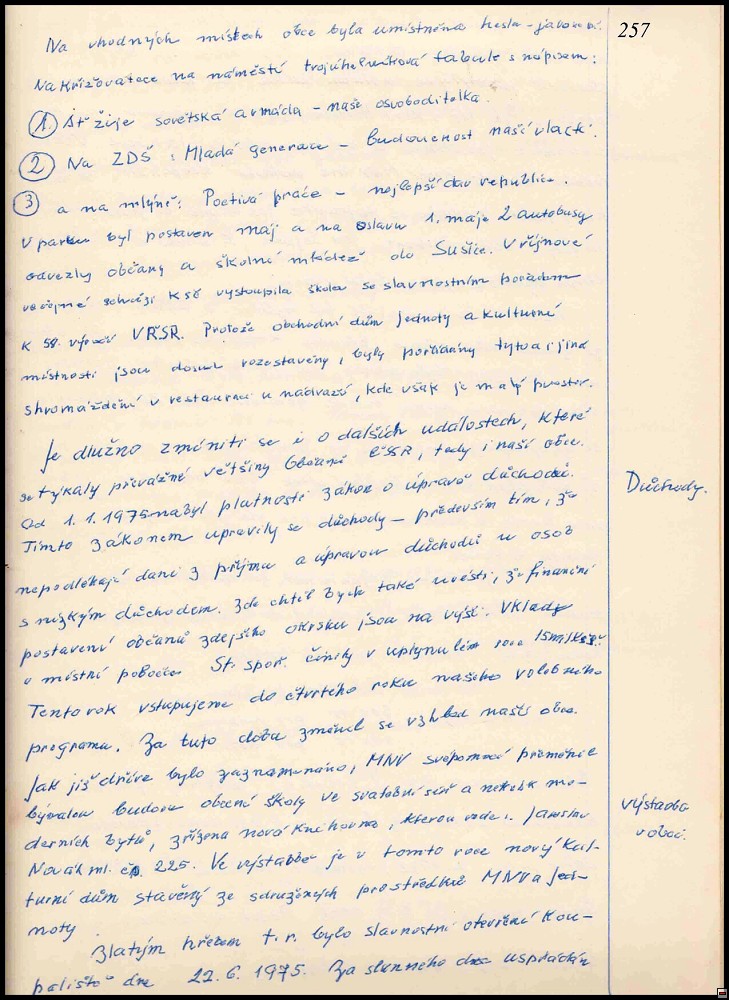 257
Na vhodných místech obce byla umístněna hesla - jako na př.
Na křižovatce na náměstí trojúhelníková tabule s nápisem:
1. Ať žije sovětská armáda - naše osvoboditelka.
2 Na ZDŠ: Mladá generace - budoucnost naší vlasti.
3 a na mlýně: Poctivá práce - nejlepší dar republice.
V parku byl postaven máj a na oslavu 1. máje 2 autobusy
odvezly občany a školní mládež do Sušice. V říjnové
veřejné schůzi KSČ vystoupila škola se slavnostním pořadem
k 58. výročí VŘSR. Protože obchodní dům Jednoty a kulturní
místnosti jsou dosud rozestavěny, byly pořádány tyto a i jiná
shromáždění v restauraci u nádraží, kde však je malý prostor.
Je dlužno zmíniti se i o dalších událostech, které
se týkaly převážné většiny občanů ČSSR, tedy i naší obce.
Důchody.
Od 1.1.1975 nabyl platnosti zákon o úpravě důchodů.
Tímto zákonem upravily se důchody - především tím, že
nepodléhají dani z příjmu a úpravou důchodů u osob
s nízkým důchodem. Zde chtěl bych také uvésti, že finanční
postavení občanů zdejšího okrsku jsou na výši. Vklady
u místní pobočce St. spoř. činily v uplynulém roce 15 mil Kčs.
Tento rok vstupujeme do čtvrtého roku našeho volebního
programu. Za tuto dobu změnil se vzhled naší obce.
Jak již dříve bylo zaznamenáno, MNV svépomocí přeměnil
výstavba
v obci.
bývalou budovu obecní školy ve svatební síň a několik mo-
derních bytů, zřízena nová knihovna, kterou vede Jaroslav
Novák ml. čp. 225. Ve výstavbě je v tomto roce nový kul-
turní dům stavěný ze sdružených prostředků MNV a Jed-
noty.
Zlatým hřebem t.r. bylo slavnostní otevření kou-
paliště dne 22.6.1975. Za slunného dne uspořádán